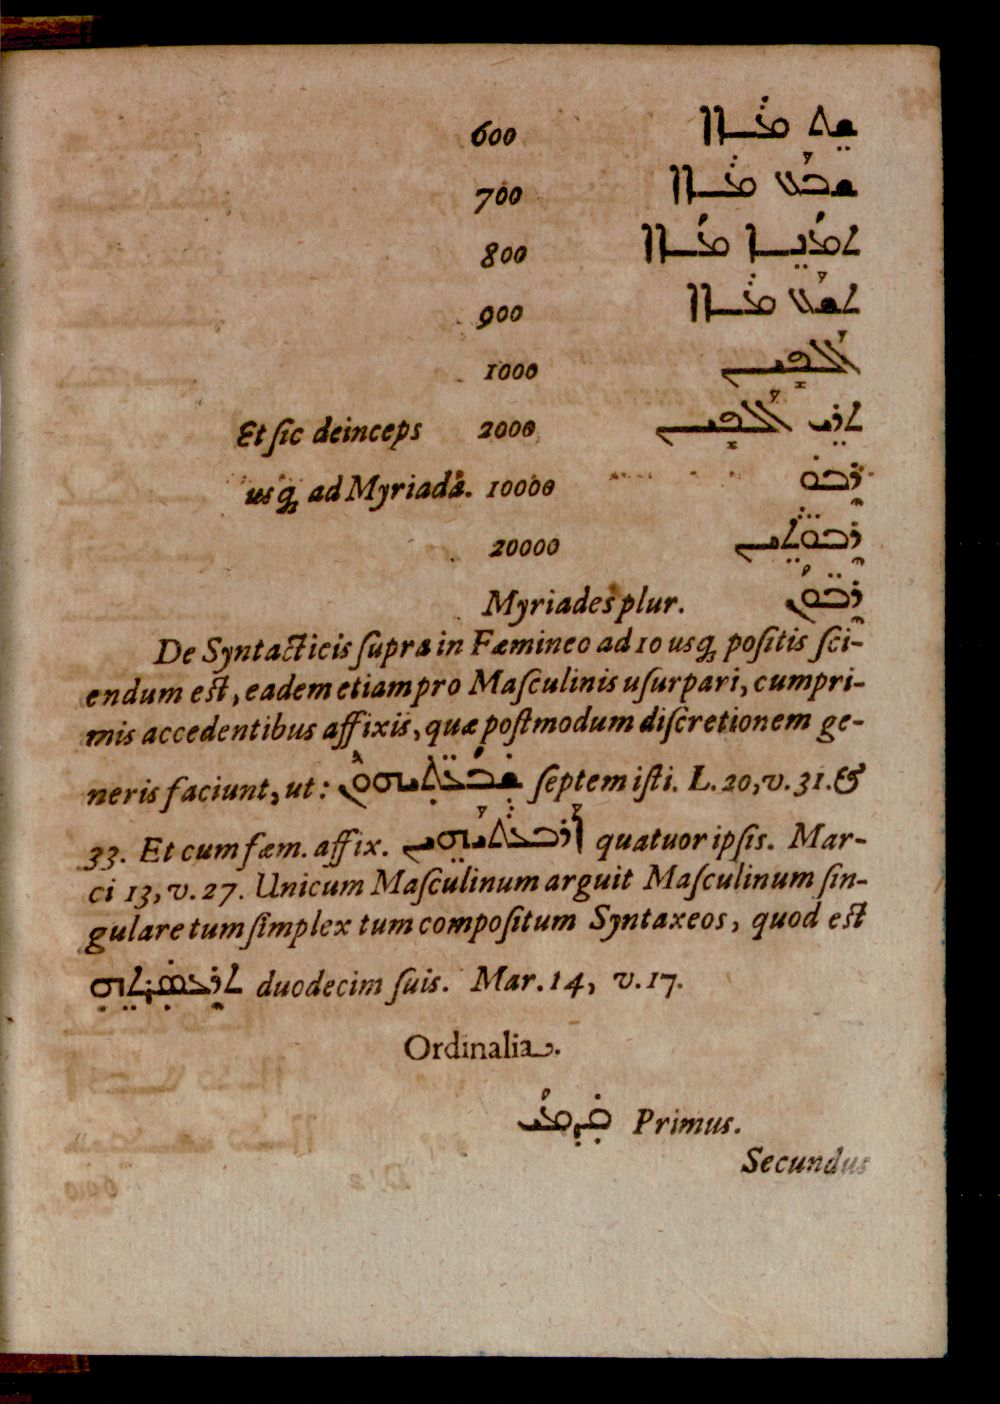 600 ܫܬ ܡܐܐ
700 ܫܒܥ ܡܐܐ
800 ܬܡܢܐ ܡܐܐ
900 ܬܫܥ ܡܐܐ
1000 ܐܠܦܝܢ
Et ſic deinceps 2000 ܬܪܝܢ ܐܠܦܝܢ
usq; ad Myriadâ. 10000 ܪܒܘ
20000 ܪܒܘܬܝܢ
Myriades plur. ܪܒܘܢ
De Syntacticis ſupra in Fæmineo ad 10 usq; poſitis ſci-
endum eſt, eadem etiam pro Maſculinis uſurpari, cumpri-
mis accedentibus affixis, quæ poſtmodum diſcretionem ge-
neris faciunt, ut: ſeptem iſti. L. 20, v. 31. &
33. Et cum fæm. affix. quatuor ipſis. Mar-
ci 13, v. 27. Unicum Maſculinum arguit Maſculinum ſin-
gulare tum ſimplex tum compoſitum Syntaxeos, quod eſt
duodecim ſuis. Mar. 14, v. 17.
Ordinalia.
ܩܕܡܝ Primus.
Secundus